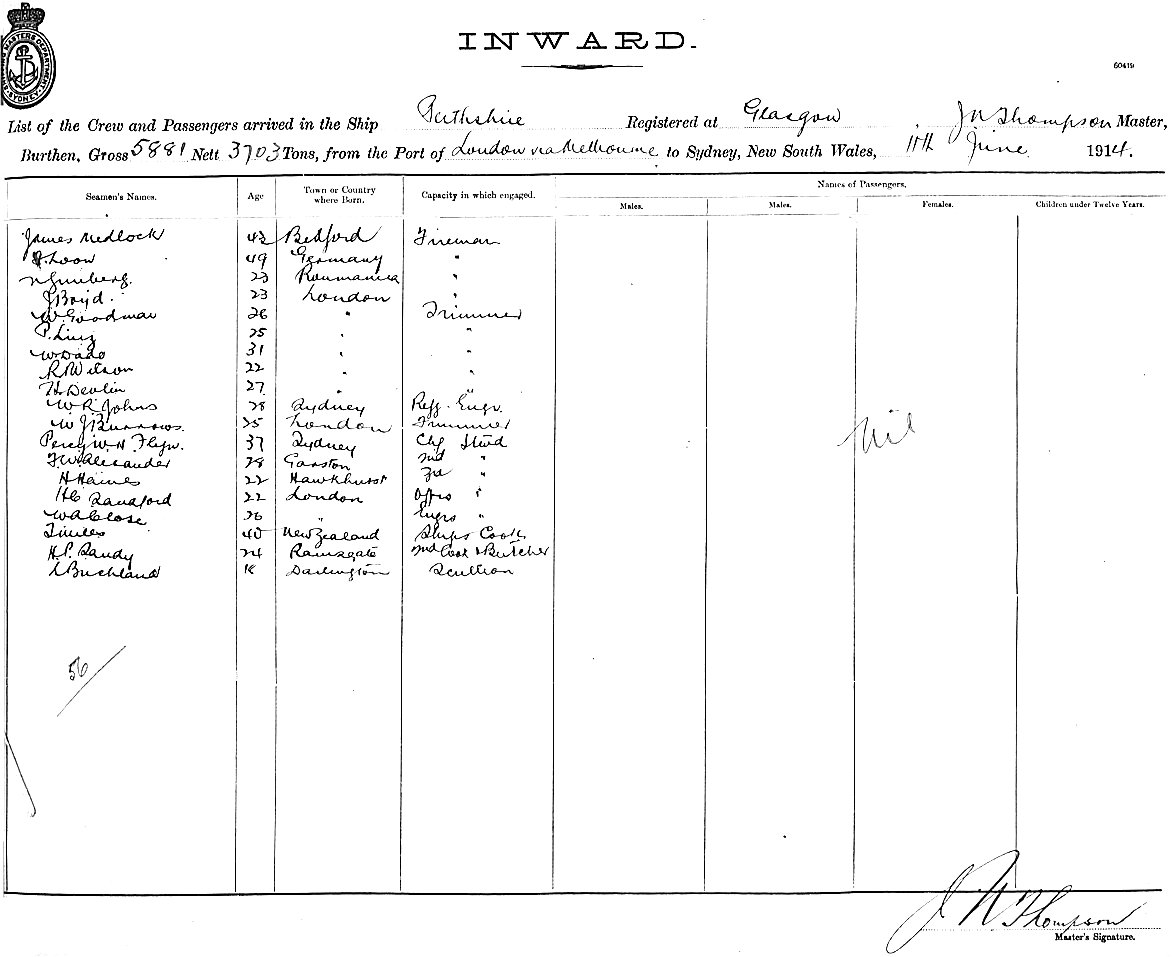 INWARD.
60419
List of the Crew and Passengers arrived in the Ship Perthshire Registered at Glasgow, J N Thompson Master,
Burthen, Gross 5881 Nett 3703 Tons, from the Port of London via Melbourne to Sydney, New South Wales, 11th June 1914.
Names of Passengers.
Seamen's Names. Age Town or Country where Born. Capacity in which engaged. Males. Males. Females. Children under Twelve Years.
James Medlock 43 Bedford Fireman
Loow 49 Germany "
23 Roumania "
J Boyd. 23 London "
W. Goodman 26 " Trimmer
P. 25 " "
W Dado 31 " "
R Wilson 22 " "
H. Devlin 27 " "
W R Johns 28 Sydney Refg. Engr.
Nil
W J Burrows. 25 London Trimmer
Percy W H Flyn. 37 Sydney Chf Stwd
F. W. Alexander 28 Garston 2nd "
H Haines 22 Hawkhurst 3rd "
H C Sandford 22 London Offrs "
W A Close 26 " Engrs "
40 New Zealand Ships Cook
H. P. Sandy 24 Ramsgate 2nd Cook & Butcher
Buckland 18 Darlington Scullion
56
J N Thompson
Master's Signature.